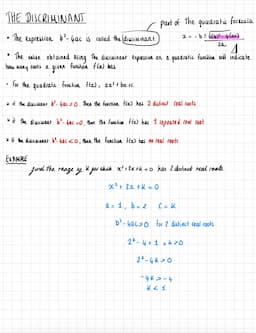 THE DISCRIMINANT
part of the quadratic formula
• The expression b²-4ac is called the discriminant
x = -b ± √b²-4(a)(c)
2a
• The value obtained using the discriminant expression on a quadratic function will indicate
how many roots a given function f(x) has
• For the quadratic function f(x) = ax² + bx + c
• if the discriminant b²-4ac > 0 then the function f(x) has 2 distinct real roots
• if the discriminant b²-4ac = 0, then the function f(x) has 1 repeated real root
• if the discriminant b²-4ac < 0, then the function f(x) has no real roots
EXAMPLE
find the range of k for which x² + 2x + k = 0 has 2 distinct real roots
x² + 2x + k = 0
a = 1, b = 2 c = k
b² - 4ac > 0 for 2 distinct real roots
2² - 4 × 1 × k > 0
2² - 4k > 0
-4k > -4
k < 1